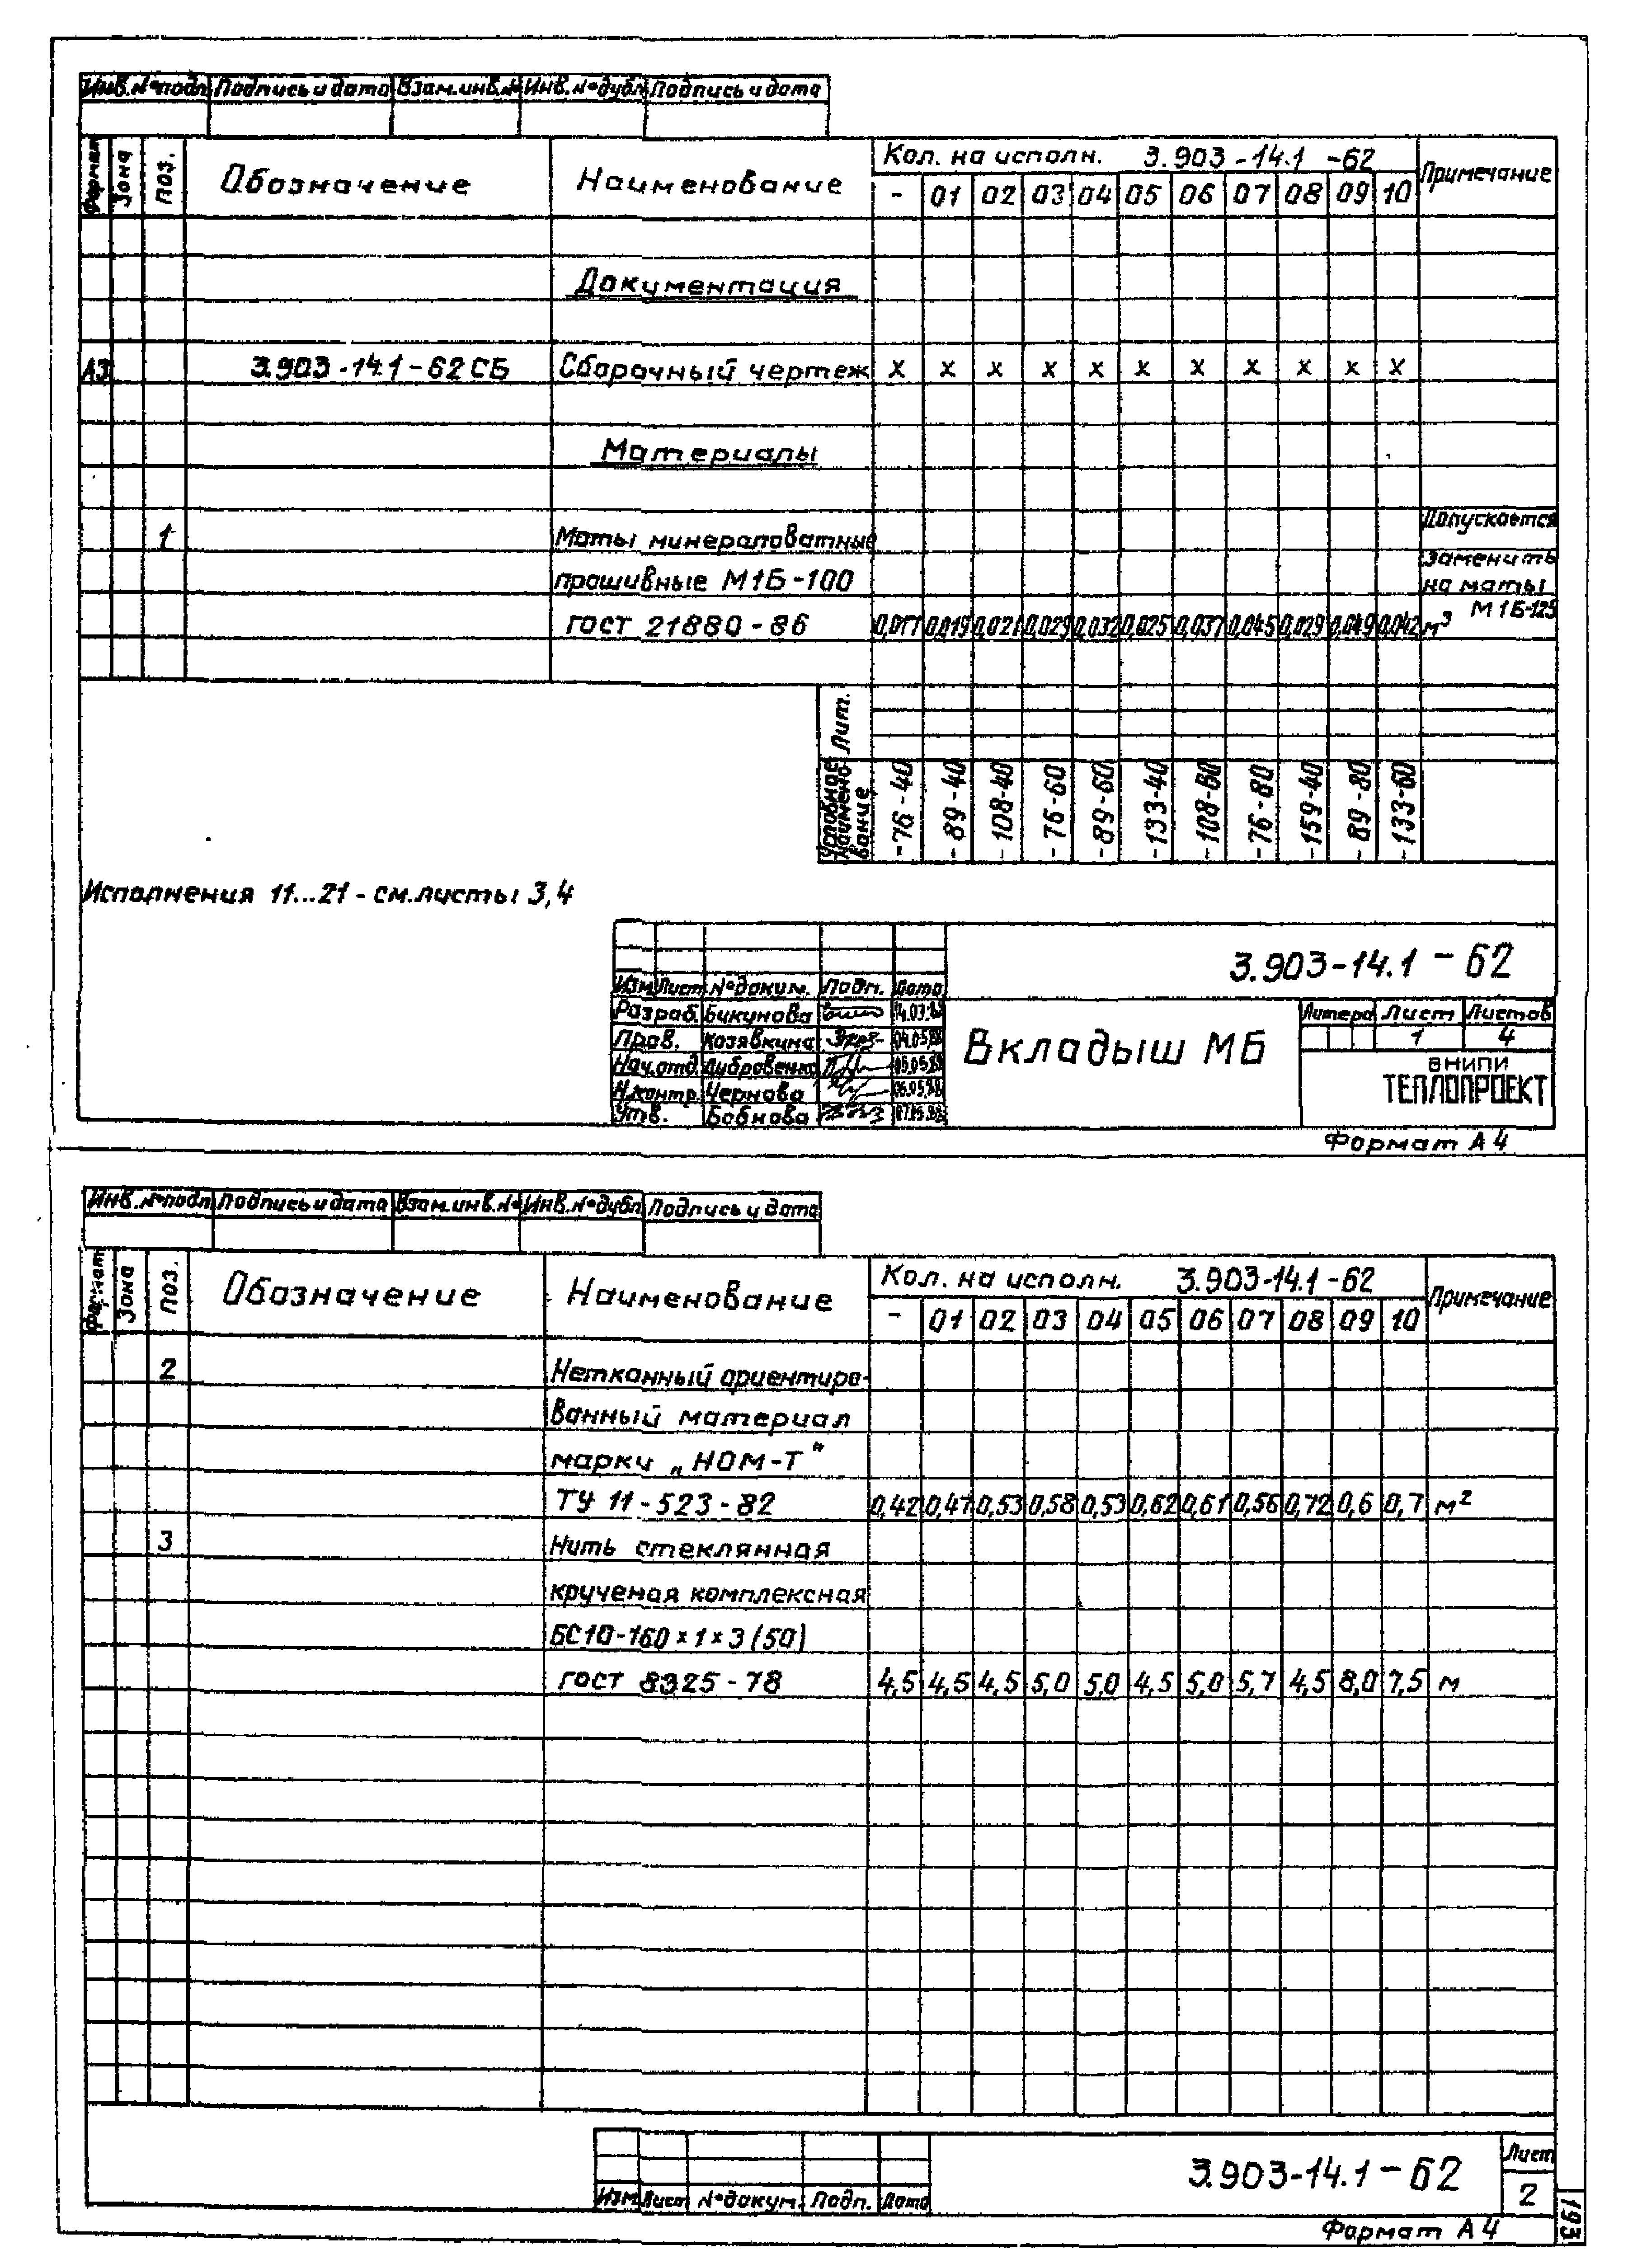 Инв.№подл. Подпись и дата Взам.инв.№ Инв.№дубл. Подпись и дата
Формат Зона Поз. Обозначение Наименование Кол. на исполн. 3.903-14.1-62 Примечание
- 01 02 03 04 05 06 07 08 09 10
Документация
А3 3.903-14.1-62СБ Сборочный чертеж х х х х х х х х х х х
Материалы
1 Маты минераловатные Допускается
прошивные М1Б-100 заменить на маты
ГОСТ 21880-86 0,017 0,019 0,021 0,029 0,032 0,025 0,037 0,045 0,029 0,049 0,042 м³ М1Б-125
Лит.
Условное наименование -76-40 -89-40 -108-40 -76-60 -89-60 -133-40 -108-60 -76-80 -159-40 -89-80 -133-60
Исполнения 11...21 - см.листы 3,4
3.903-14.1-62
Изм Лист №докум. Подп. Дата
Разраб. Бикунова 14.03.88
Пров. Козявкина 04.05.88
Нач.отд. Дибровенко 05.05.88
Н.контр. Чернова 06.05.88
Утв. Бобнова 07.05.88
Вкладыш МБ
Литера Лист Листов
1 4
ВНИПИ
ТЕПЛОПРОЕКТ
Формат А4
Инв.№подл. Подпись и дата Взам.инв.№ Инв.№дубл. Подпись и дата
Формат Зона Поз. Обозначение Наименование Кол. на исполн. 3.903-14.1-62 Примечание
- 01 02 03 04 05 06 07 08 09 10
2 Нетканный ориентиро-
ванный материал
марки „НОМ-Т"
ТУ 11-523-82 0,42 0,47 0,53 0,58 0,53 0,62 0,61 0,56 0,72 0,6 0,7 м²
3 Нить стеклянная
крученая комплексная
БС10-160×1×3(50)
ГОСТ 8325-78 4,5 4,5 4,5 5,0 5,0 4,5 5,0 5,7 4,5 8,0 7,5 м
3.903-14.1-62
Лист
2
Изм Лист №докум. Подп. Дата
Формат А4
193